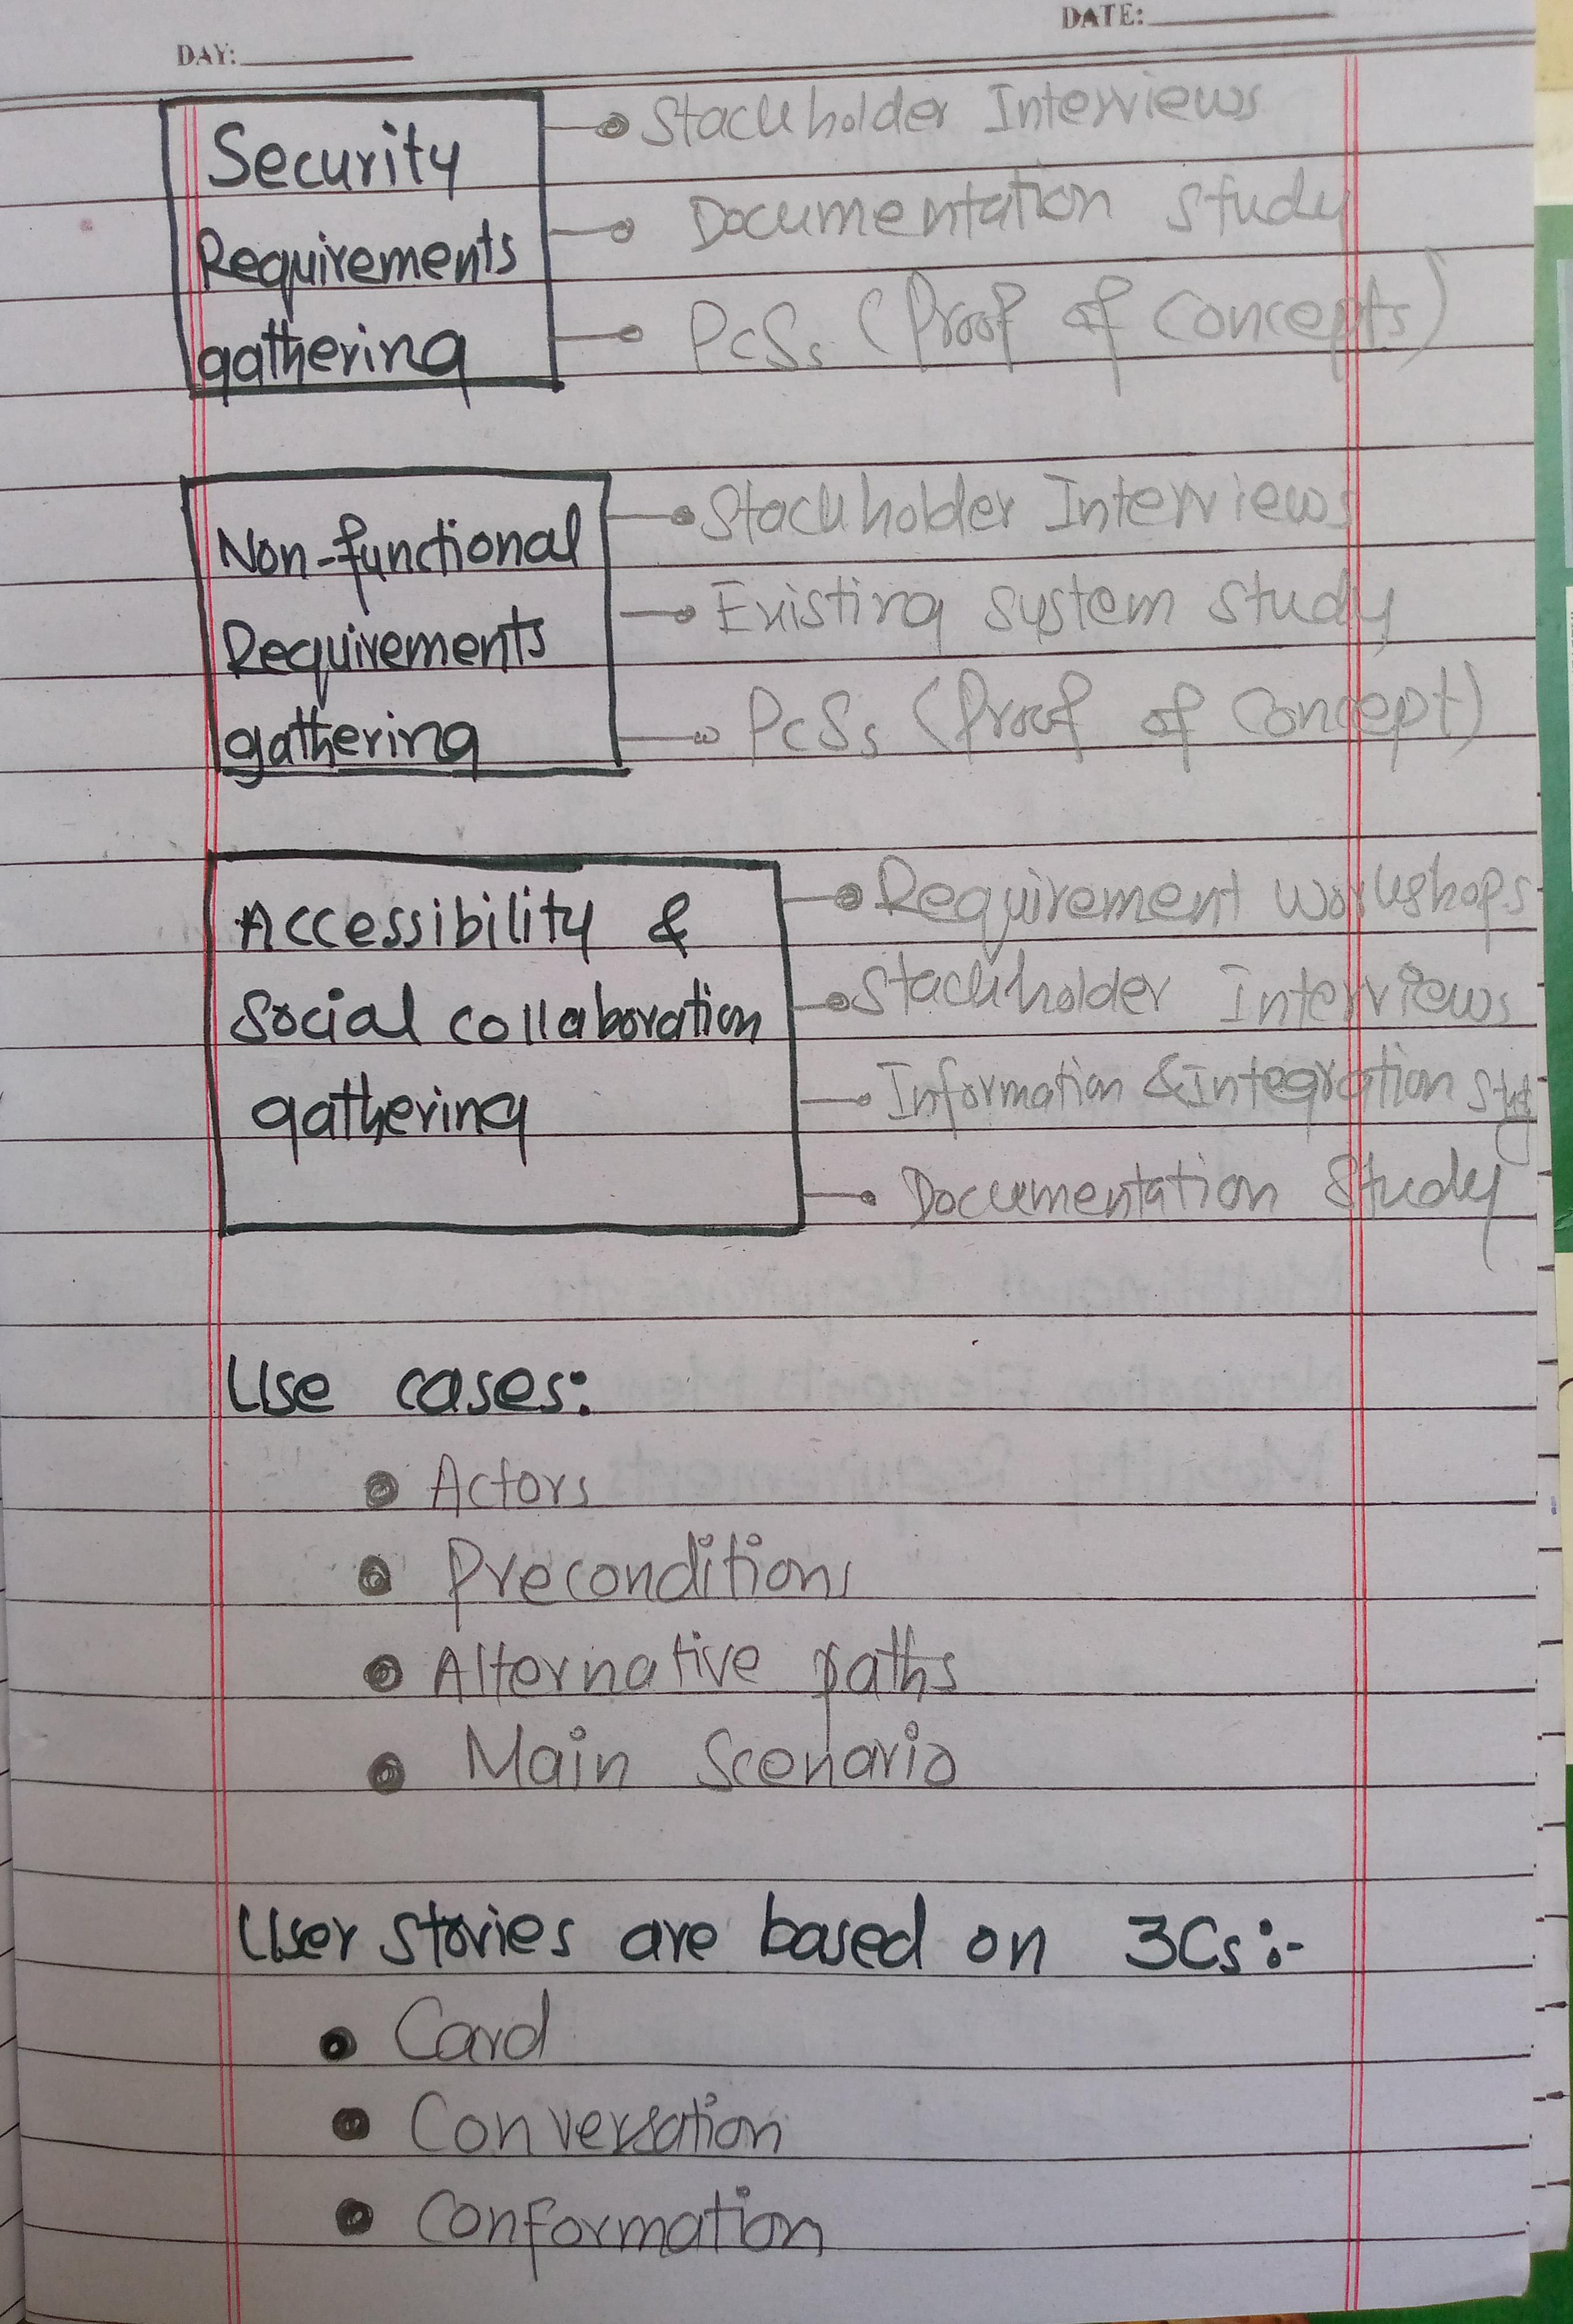 DATE:
DAY:
Security
Requirements
gathering
Stackholder Interviews
Documentation study
PcSs (Proof of Concepts)
Non-functional
Requirements
gathering
Stackholder Interviews
Existing system study
PcSs (Proof of Concept)
Accessibility &
Social collaboration
gathering
Requirement workshops
Stackholder Interviews
Information & Integration
Documentation Study
Use cases:
Actors
Preconditions
Alternative paths
Main Scenario
User stories are based on 3Cs:-
Card
Conversation
Conformation